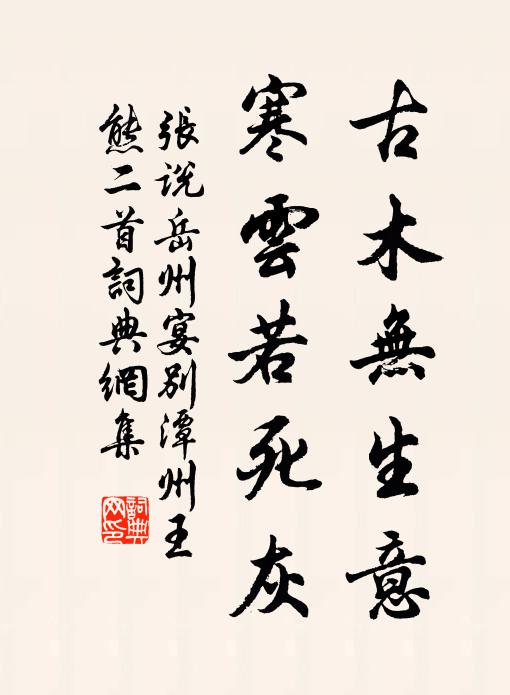 古木無生意
寒雲若死灰
張説岳州宴別潭州王
熊二首詞典網集
詞典
网印